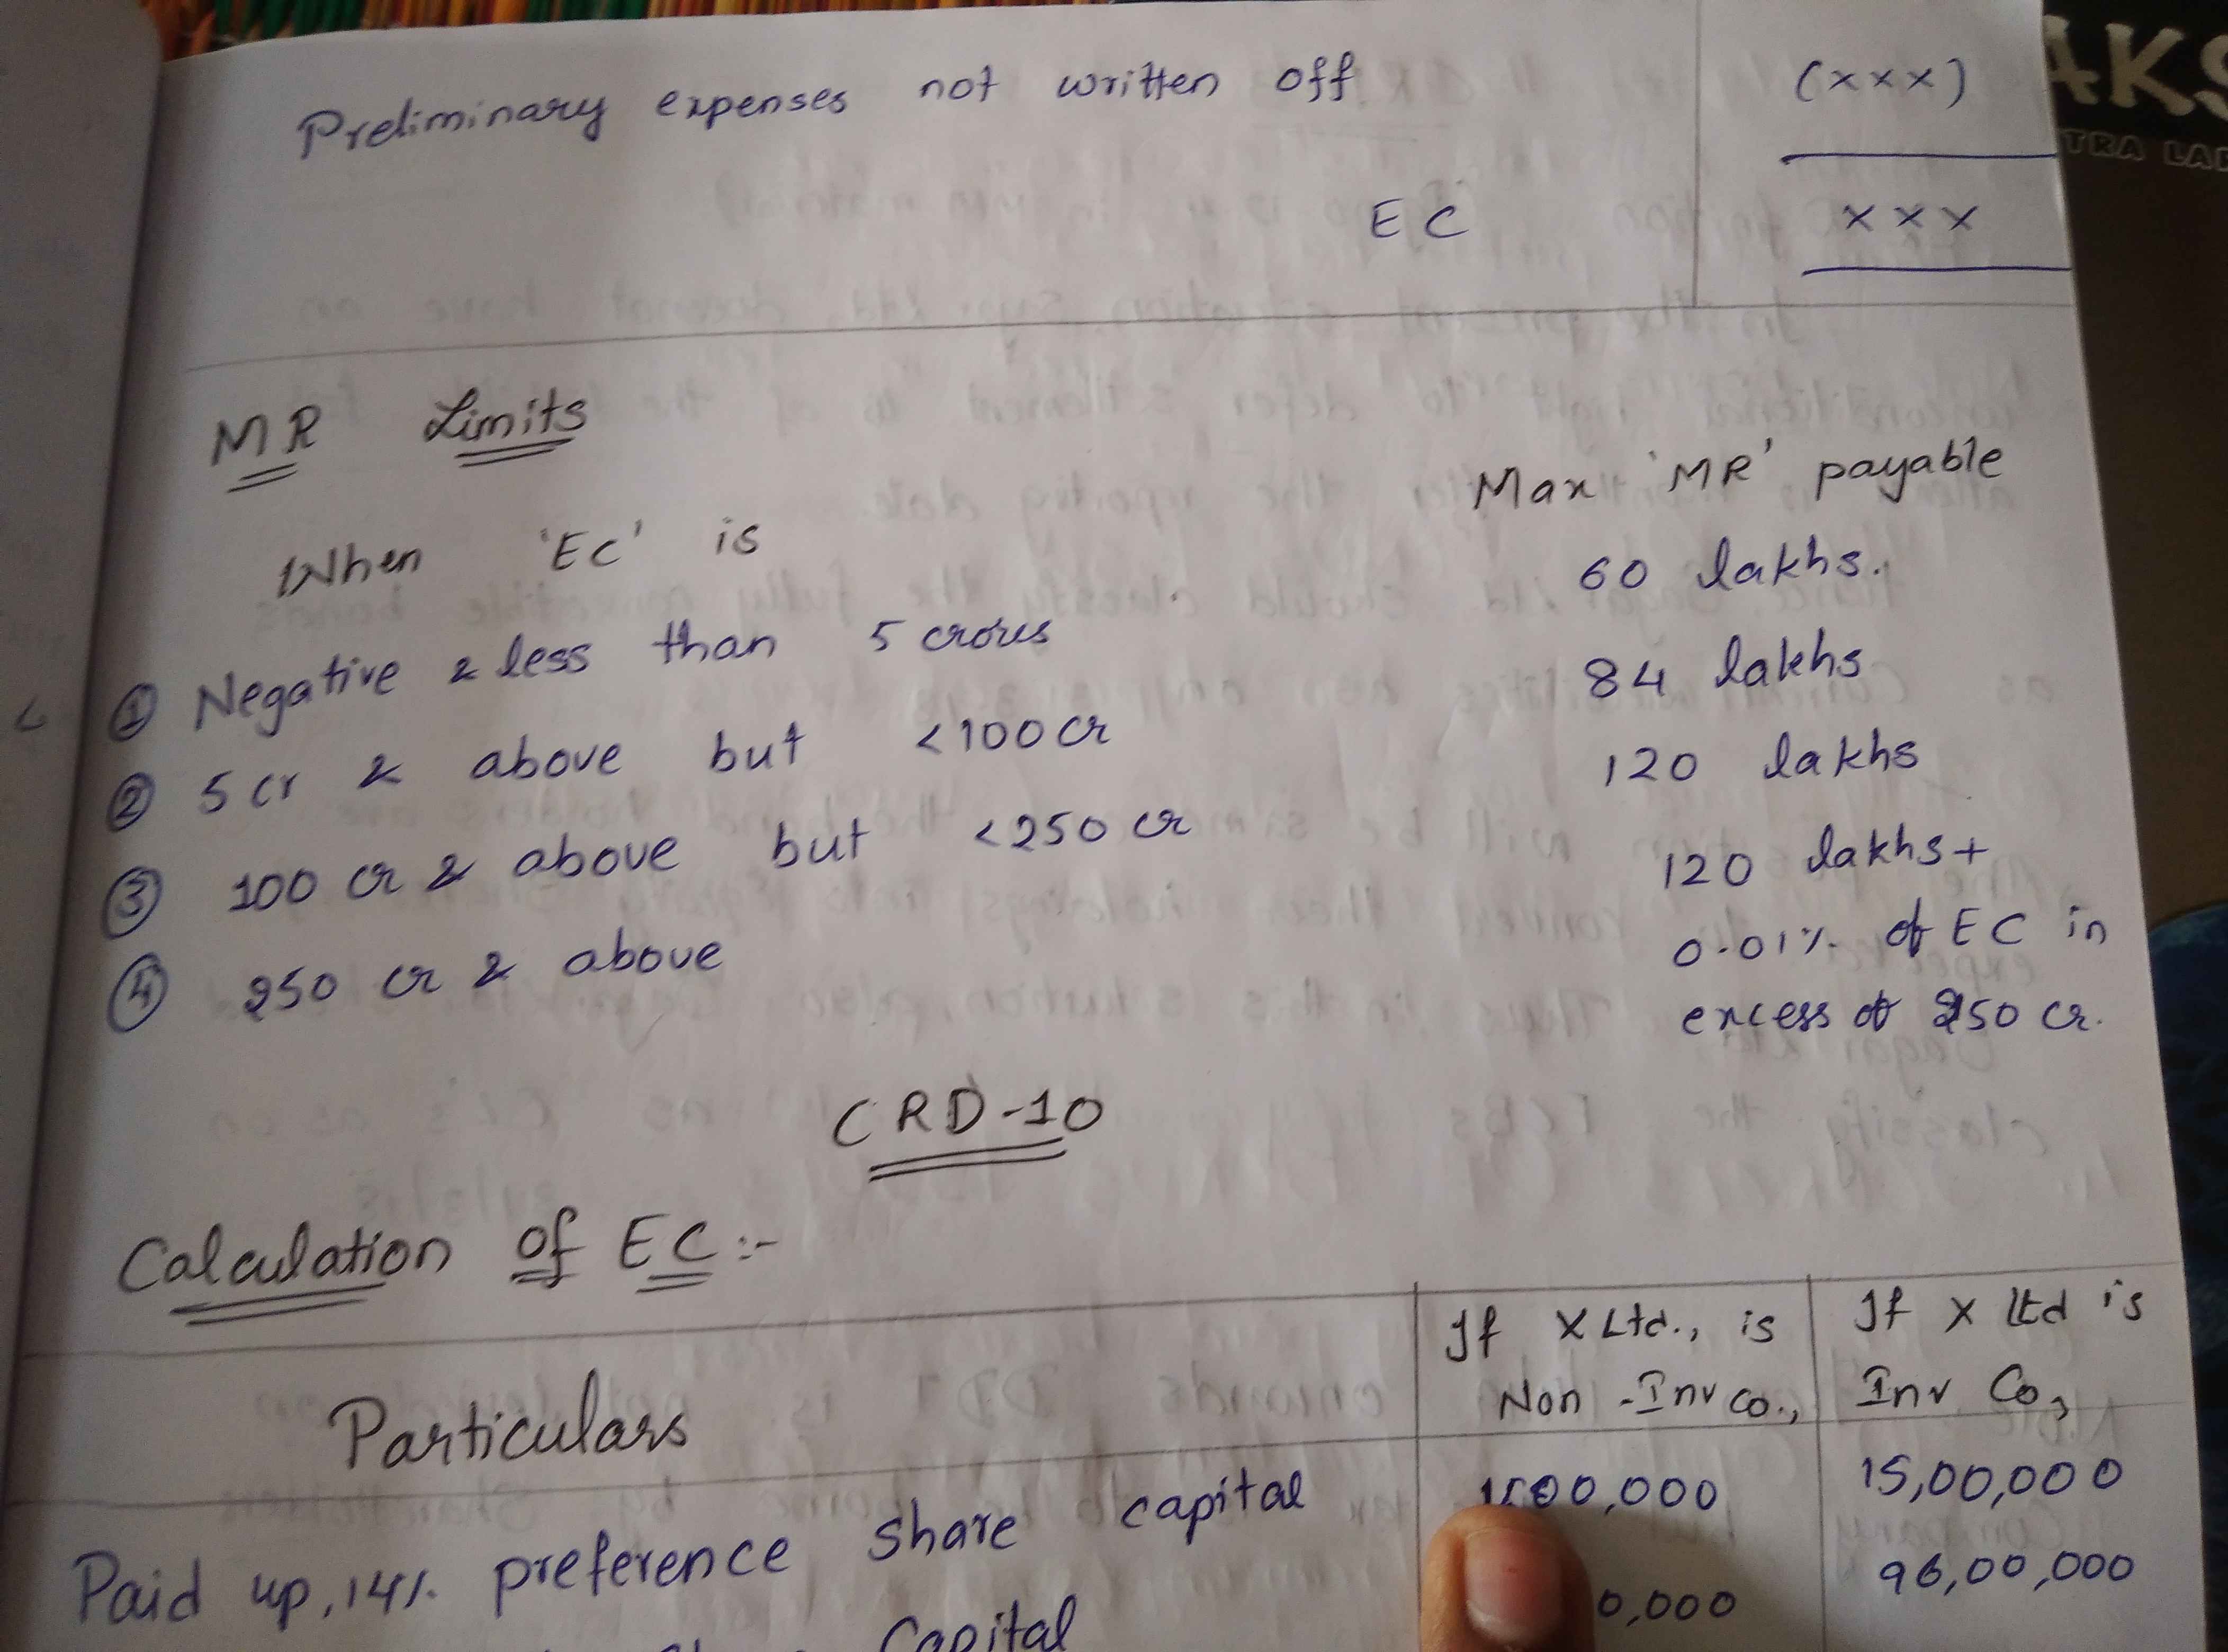 Preliminary expenses not written off (xxx)
EC xxx
MR Limits
When 'EC' is Max 'MR' payable
① Negative & less than 5 crores 60 lakhs.
② 5 cr & above but <100 cr 84 lakhs
③ 100 cr & above but <250 cr 120 lakhs
④ 250 cr & above 120 lakhs +
0.01% of EC in
excess of 250 cr.
CRD-10
Calculation of EC:-
Particulars If X Ltd., is If X Ltd is
Non-Inv co., Inv Co,
Paid up, 14% preference share capital 1500,000 15,00,000
Capital 0,000 96,00,000